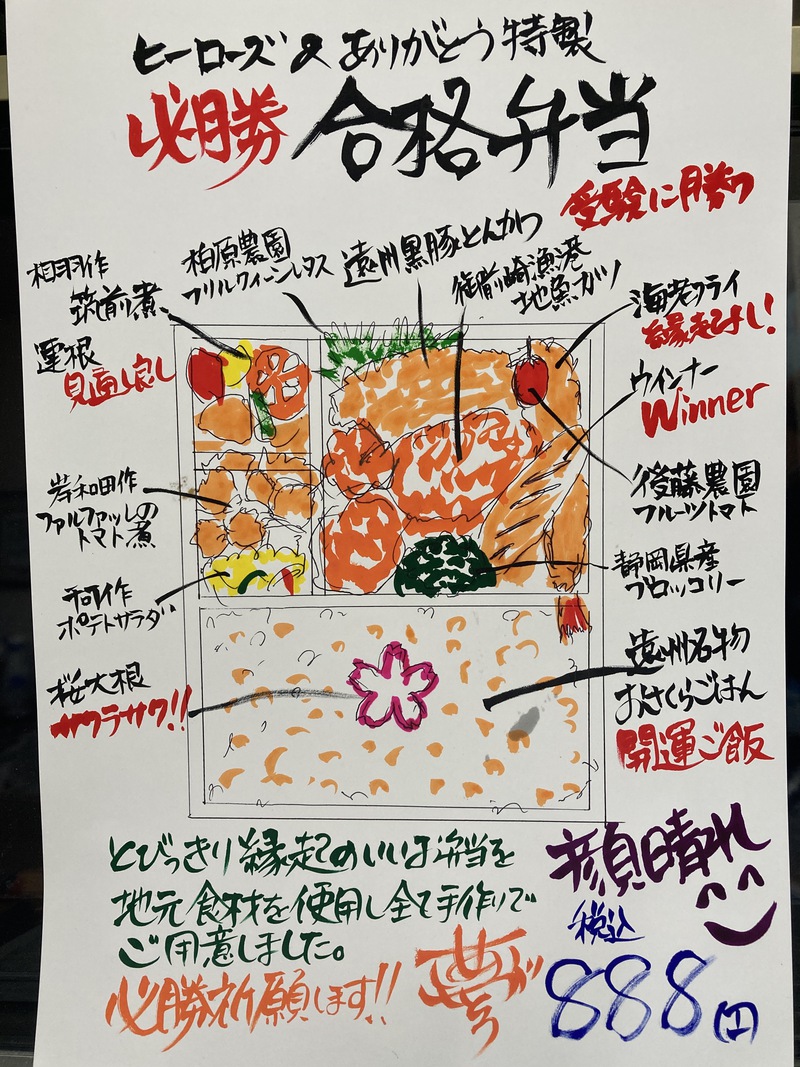 ヒーローズ&ありがとう特製
必勝 合格弁当
受験に勝つ
相羽作
筑前煮
蓮根
見通し良し
柏原農園
フリルグリーンレタス
遠州黒豚とんかつ
御前崎漁港
地魚カツ
海老フライ
縁起よし!
ウインナー
Winner
後藤農園
フルーツトマト
岸和田作
ファルファッレの
トマト煮
静岡県産
ブロッコリー
河作
ポテトサラダ
桜大根
サクラサク!!
遠州名物
おさくらごはん
開運ご飯
とびっきり縁起のいいお弁当を
地元食材を使用し全て手作りで
ご用意しました。
必勝祈願します!!
顔晴れ
税込
888円